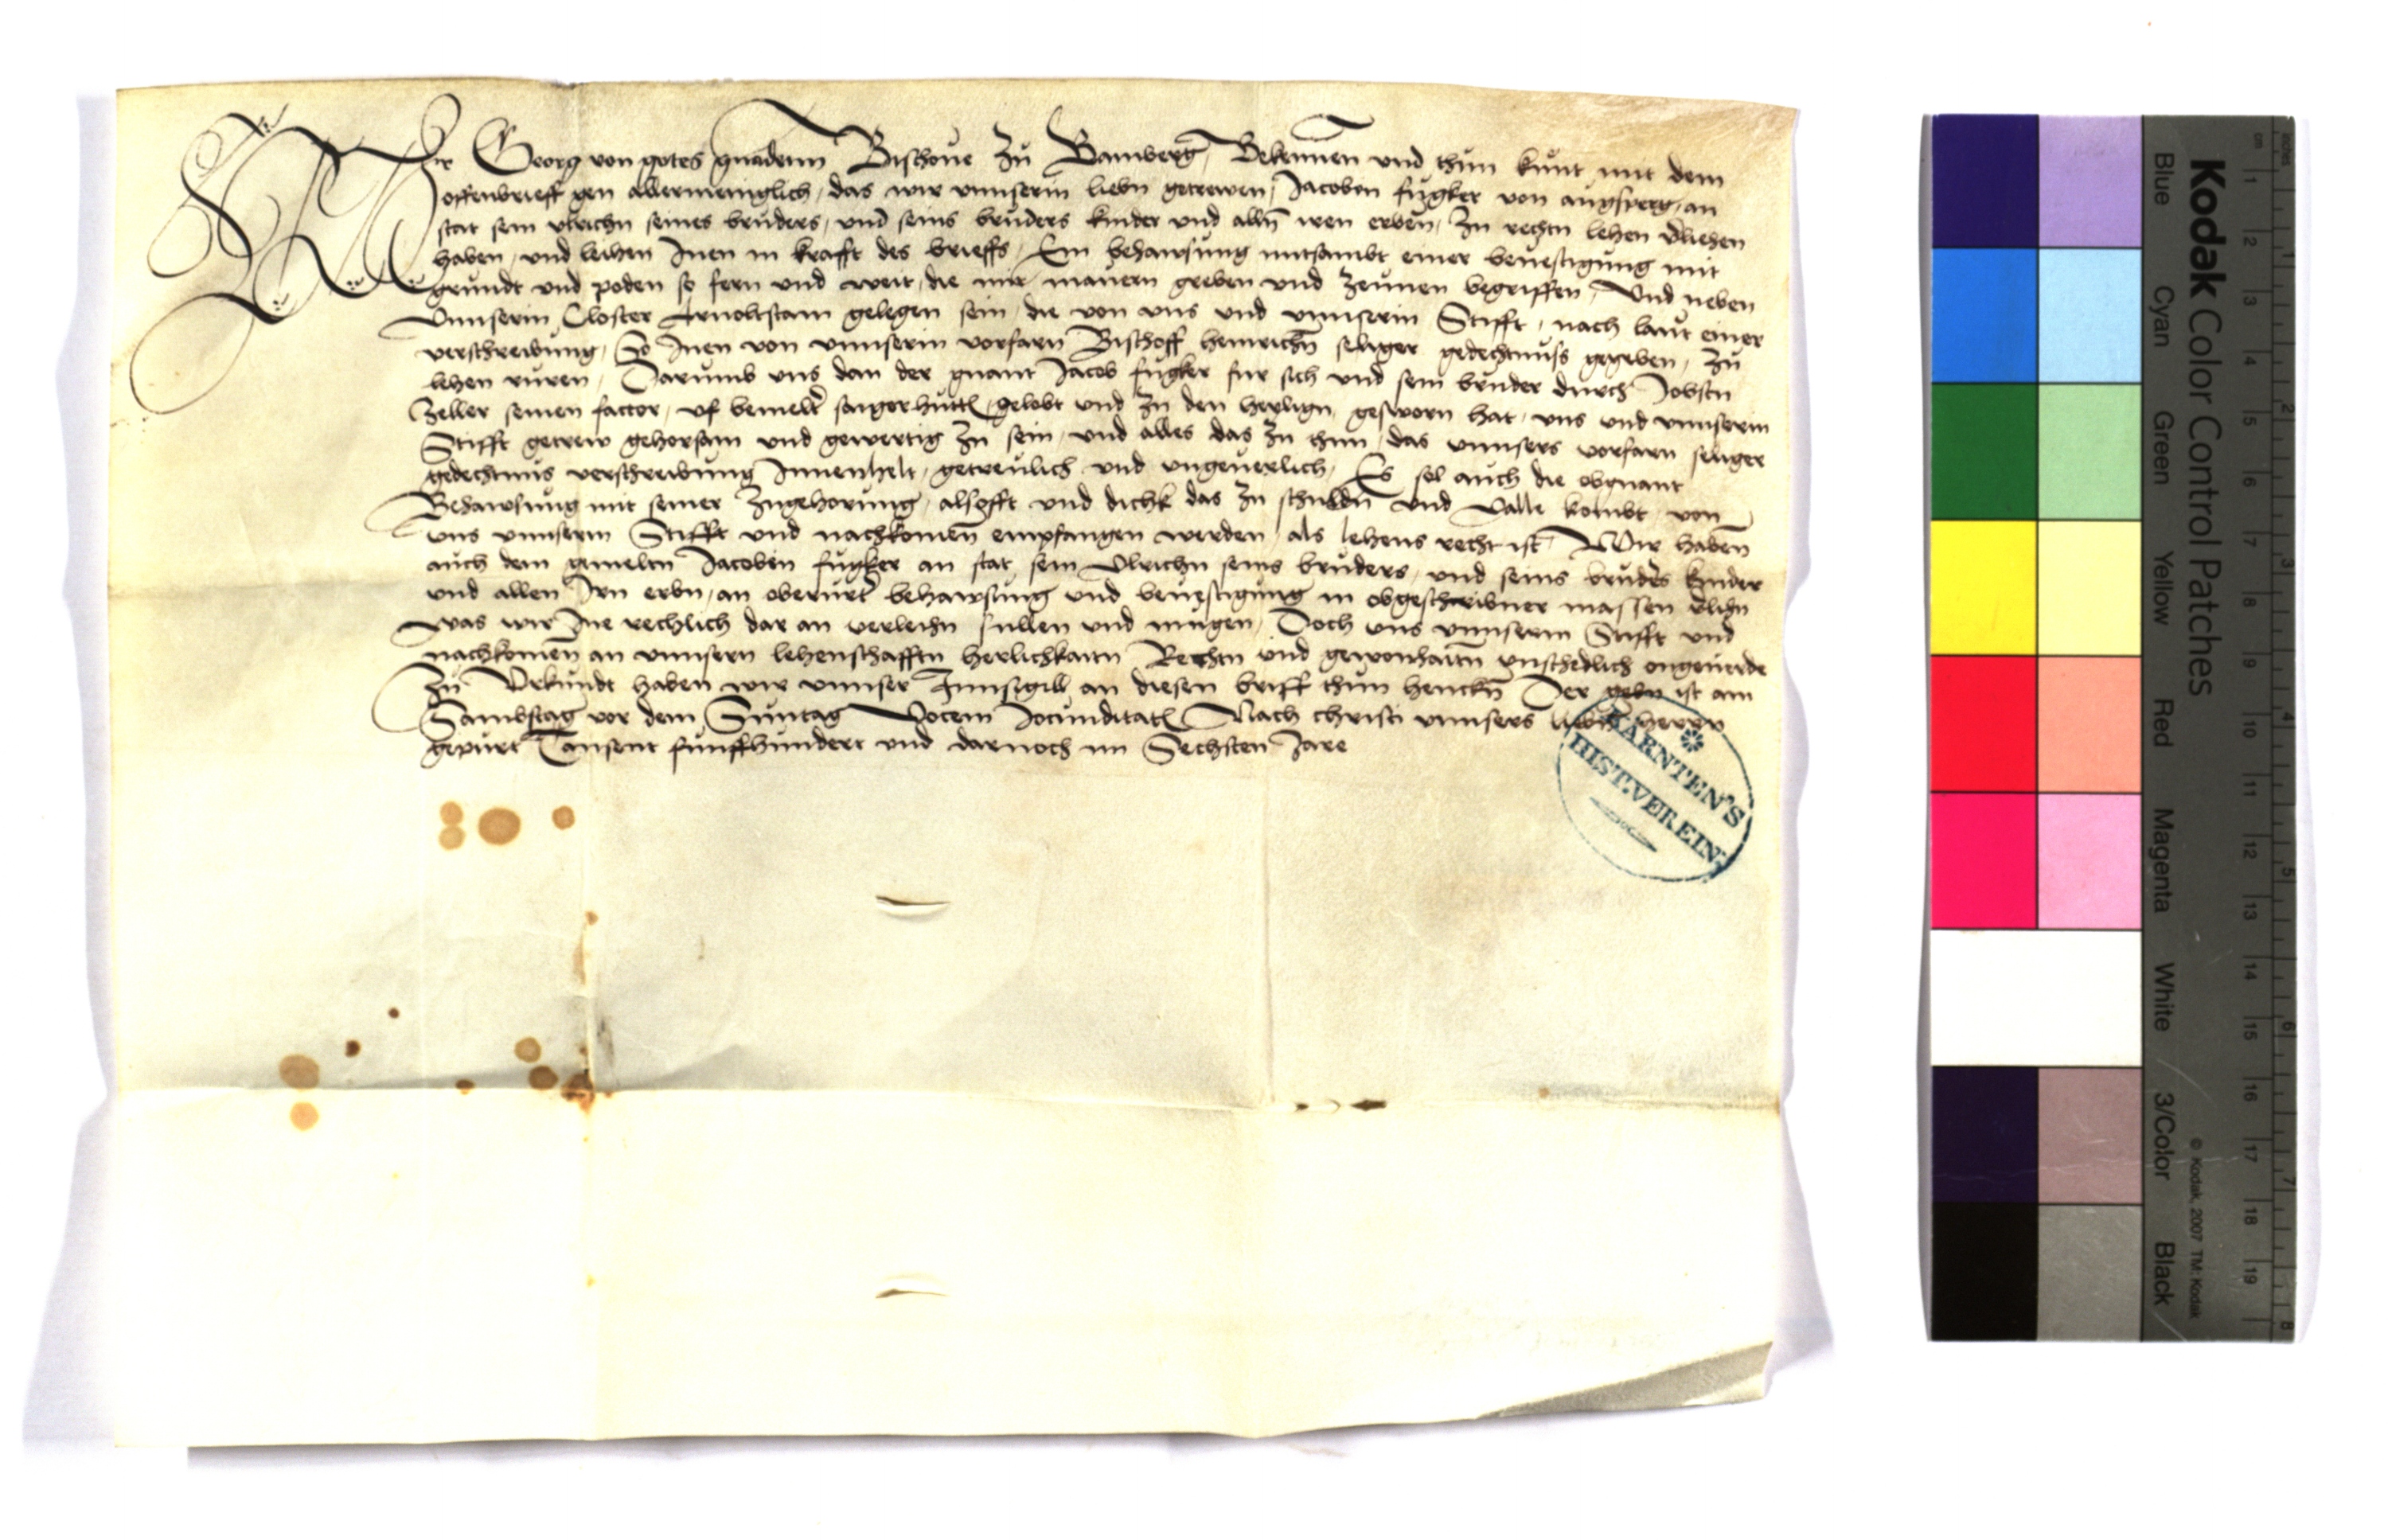 Wir Georg von gotes gnadenn Bischoue zu Bamberg, Bekennen und thun kunt mit dem
offenbrieff gen allermeniglich, das wir vnnserm liebn getrewen, Jacoben fugker von augspurg, an
stat sein vlrichn seines bruders, und seins bruders kinder und alln iren erben, zu rechtn lehen vliehen
haben, und leihen Inen in krafft des brieffs, Ein behawsung mitsambt einer beuestigung mit
grundt und poden so fern und weit, die mit mauern greben und zeunen begriffen, Und neben
Unnserm Closter Arnoltstain gelegen sein, die von vns und vnnserm Stifft, nach laut einer
verschreibung, So Inen von vnnserm vorfarn Bischoff heinrichn seliger gedechtnuss gegeben, zu
lehen ruren, Darumb vns dan der gnant Jacob fugker fur sich und sein bruder durch Jobstn
Zeller seinen factor, vf bemelt saigerhuttn, gelobt und zu den heilign gesworn hat, vns und vnnserm
Stifft getrew gehorsam und gewertig zu sein, und alles das zu thun, das vnnsers vorfarn seliger
gedechtnus verschreibung Innenhelt, getreulich und ungeuerlich, Es sol auch die obgnant
Behawsung mit seiner zugehorung, alsofft und dickh das zu schuldn und Valle kombt, von
uns vnnserm Stifft und nachkomen empfangen werden, als lehens recht ist, Wir haben
auch dem gemeltn Jacoben fugker an stat sein Vlrichn seins bruders, und seins bruders kinder
und allen Irn erbn, an oberurt behawsung und beuestigung in obgeschribner massen vlihn
was wir Ine rechlich dar an verleihn sullen und mugen, Doch uns vnnserm Stifft und
nachkomen an vnnsern lehenschafftn herlichkaitn Rechtn und gewonhaitn unschedlich ongeuerde
zu Vrkundt haben wir vnnser Innsigill an diesen briff thun henckn Der gebn ist am
Sambstag vor dem Suntag Vocem Jocunditatis Nach christi vnnsers liebn herrn
gepurt Tausent funffhundert und darnoch im Sechsten Jare
KÄRNTEN'S
HIST.VEREIN.
Kodak Color Control Patches
Blue Cyan Green Yellow Red Magenta White 3/Color Black
© Kodak, 2007 TM: Kodak
inches 1 2 3 4 5 6 7 8
cm 1 2 3 4 5 6 7 8 9 10 11 12 13 14 15 16 17 18 19